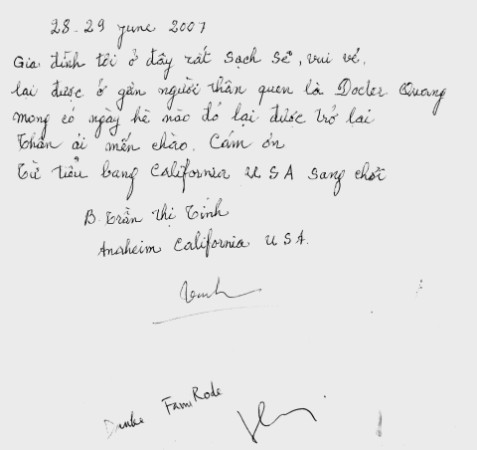 28-29 june 2007
Gia đình tôi ở đây rất sạch sẽ, vui vẻ,
lại được ở gần người thân quen là Docter Quang
mong có ngày hè nào đó lại được trở lại
Thân ái mến chào. Cám ơn
Từ tiểu bang California USA sang chơi
B. Trần Thị Tính
Anaheim California USA.
Danke Fami Rode